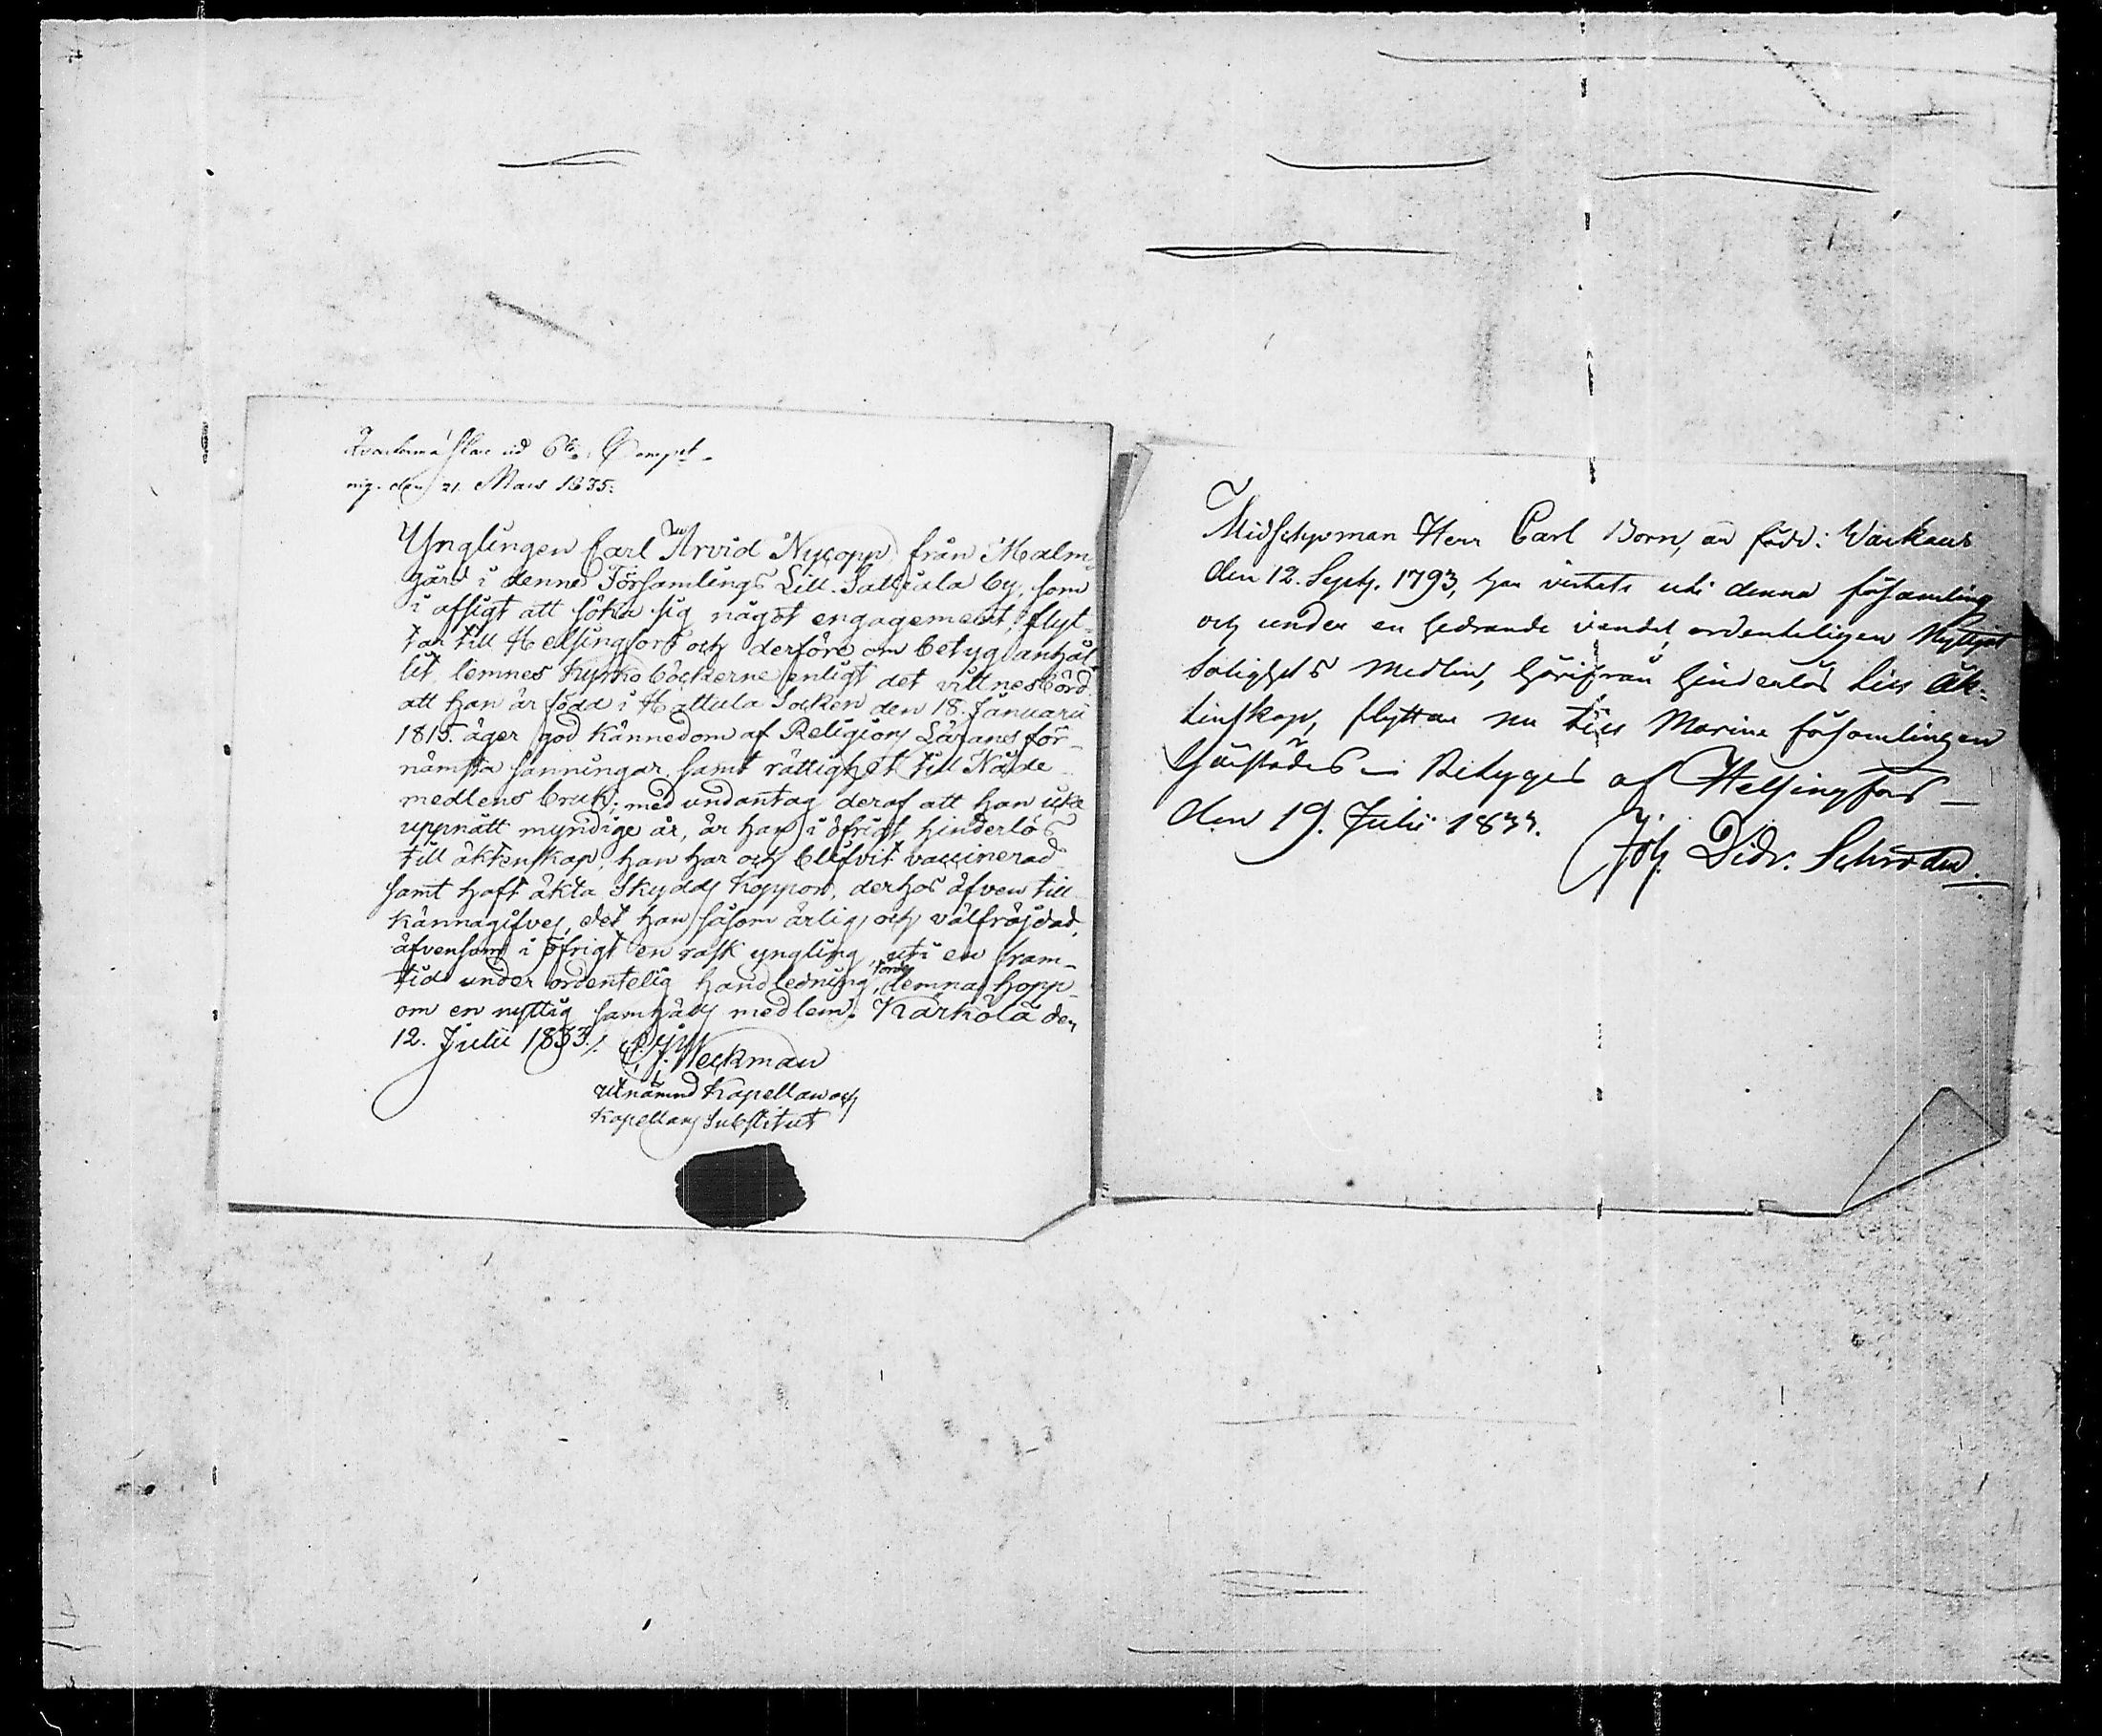 den 21. Mars 1835.
Ynglingen Carl Arvid Nycopp från Malm-
gård i denne Församlings Lill. Sattiala by, som
i afsigt att söka sig något engagement, flyt-
tar till Helsingfors och derföre om betyg anhål-
lit, lemnes Kyrkoböckerne enligt det vittnesbörd
att han är född i Hattula Socken den 18. Januarii
1815. äger god kännedom af Religions Lärans för-
nämsta sanningar samt rättighet till Nåde
medlens bruk; med undantag deraf att han icke
uppnått myndige år, är han i öfrigt hinderlös
till äktenskap; han har och blifvit vaccinerad
samt haft äkta Skydds Koppor, derhos äfven till
kännagifves, det han såsom ärlig och välfräjdad,
äfvensom i öfrigt en rask yngling, uti en fram-
tid under ordentelig handledning, torde lemna hopp
om en nyttig samhälls medlem. Kärkölä den
12. Julii 1833.
C. J. Weckman
utnämnd Kapellan och
Kapellans Substitut
Midshipman Herr Carl Born, är född i Warkaus
den 12. Septj. 1793, har vistats uti denna församling
och under en hedrande vandel, ordenteligen nyttjat
Salighets Medlen, härifrån hinderlös till Äk-
tenskap, flyttar nu till Marine församlingen
härstädes — Betyges af Helsingfors —
den 19. Julii 1833.
Joh. Didr. Schröder.